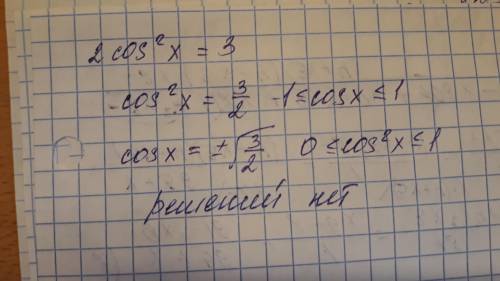 2cos²x = 3
cos²x = 3/2 -1 ≤ cosx ≤ 1
cosx = ±√(3/2) 0 ≤ cos²x ≤ 1
решений нет